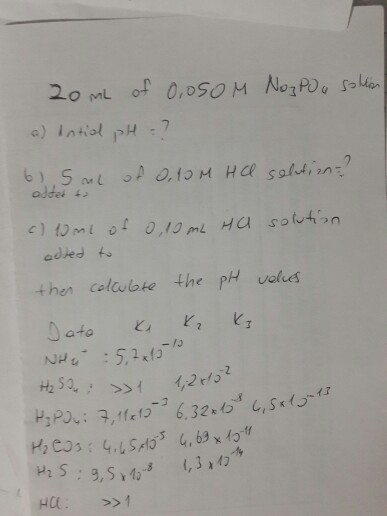 20 mL of 0,050 M Na3PO4 solution
a) Intial pH = ?
b) 5 mL of 0,10 M HCl solution = ?
added to
c) 10 mL of 0,10 mL HCl solution
added to
then calculate the pH values
Data K1 K2 K3
NH4+ : 5,7x10-10
H2SO4 : >>1 1,2x10-2
H3PO4: 7,11x10-3 6,32x10-8 4,5x10-13
H2CO3: 4,45x10-5 4,69x10-11
H2S : 9,5x10-8 1,3x10-14
HCl: >>1